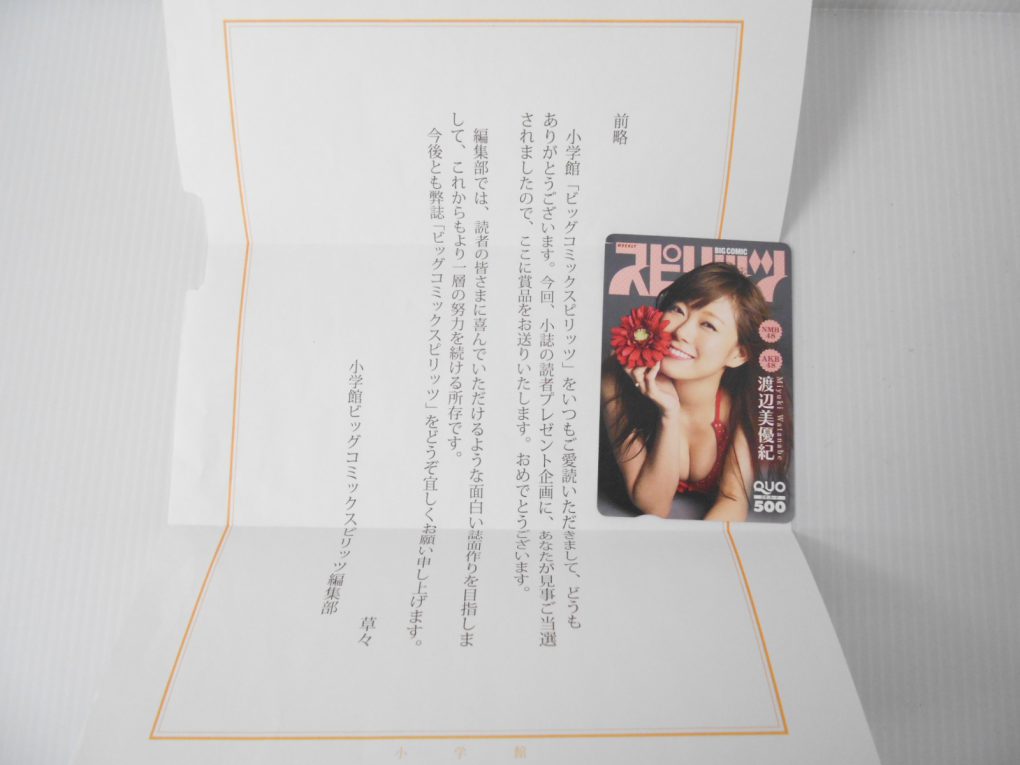 前略
小学館「ビッグコミックスピリッツ」をいつもご愛読いただきまして、どうも
ありがとうございます。今回、小誌の読者プレゼント企画に、あなたが見事ご当選
されましたので、ここに賞品をお送りいたします。おめでとうございます。
編集部では、読者の皆さまに喜んでいただけるような面白い誌面作りを目指しま
して、これからもより一層の努力を続ける所存です。
今後とも弊誌「ビッグコミックスピリッツ」をどうぞ宜しくお願い申し上げます。
草々
小学館ビッグコミックスピリッツ編集部
小学館
WEEKLY
BIG COMIC
スピリッツ
NMB
48
AKB
48
Miyuki Watanabe
渡辺美優紀
QUO
500